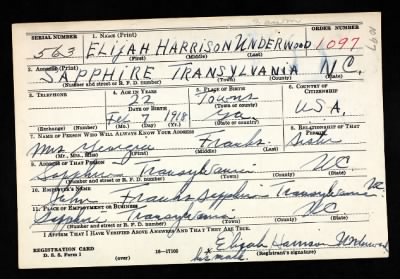 SERIAL NUMBER 1. NAME (Print) ORDER NUMBER
563 ELIJAH HARRISON UNDERWOOD 1097
(First) (Middle) (Last)
2. ADDRESS (Print)
SAPPHIRE TRANSYLVANIA N.C.
(Number and street or R. F. D. number) (Town) (County) (State)
3. TELEPHONE 4. AGE IN YEARS 5. PLACE OF BIRTH 6. COUNTRY OF CITIZENSHIP
22 Towns
DATE OF BIRTH (Town or county)
Feb 7 1918 Ga U.S.A.
(Exchange) (Number) (Mo.) (Day) (Yr.) (State or country)
7. NAME OF PERSON WHO WILL ALWAYS KNOW YOUR ADDRESS 8. RELATIONSHIP OF THAT PERSON
Mrs Georgia Franks Sister
(Mr., Mrs., Miss) (First) (Middle) (Last)
9. ADDRESS OF THAT PERSON
Sapphire Transylvania N.C.
(Number and street or R. F. D. number) (Town) (County) (State)
10. EMPLOYER'S NAME
John Franks Sapphire Transylvania NC
11. PLACE OF EMPLOYMENT OR BUSINESS
Sapphire Transylvania NC
(Number and street or R. F. D. number) (Town) (County) (State)
I AFFIRM THAT I HAVE VERIFIED ABOVE ANSWERS AND THAT THEY ARE TRUE.
Elijah Harrison Underwood
REGISTRATION CARD 16—17105 (Registrant's signature)
D. S. S. Form 1 (over) his mark